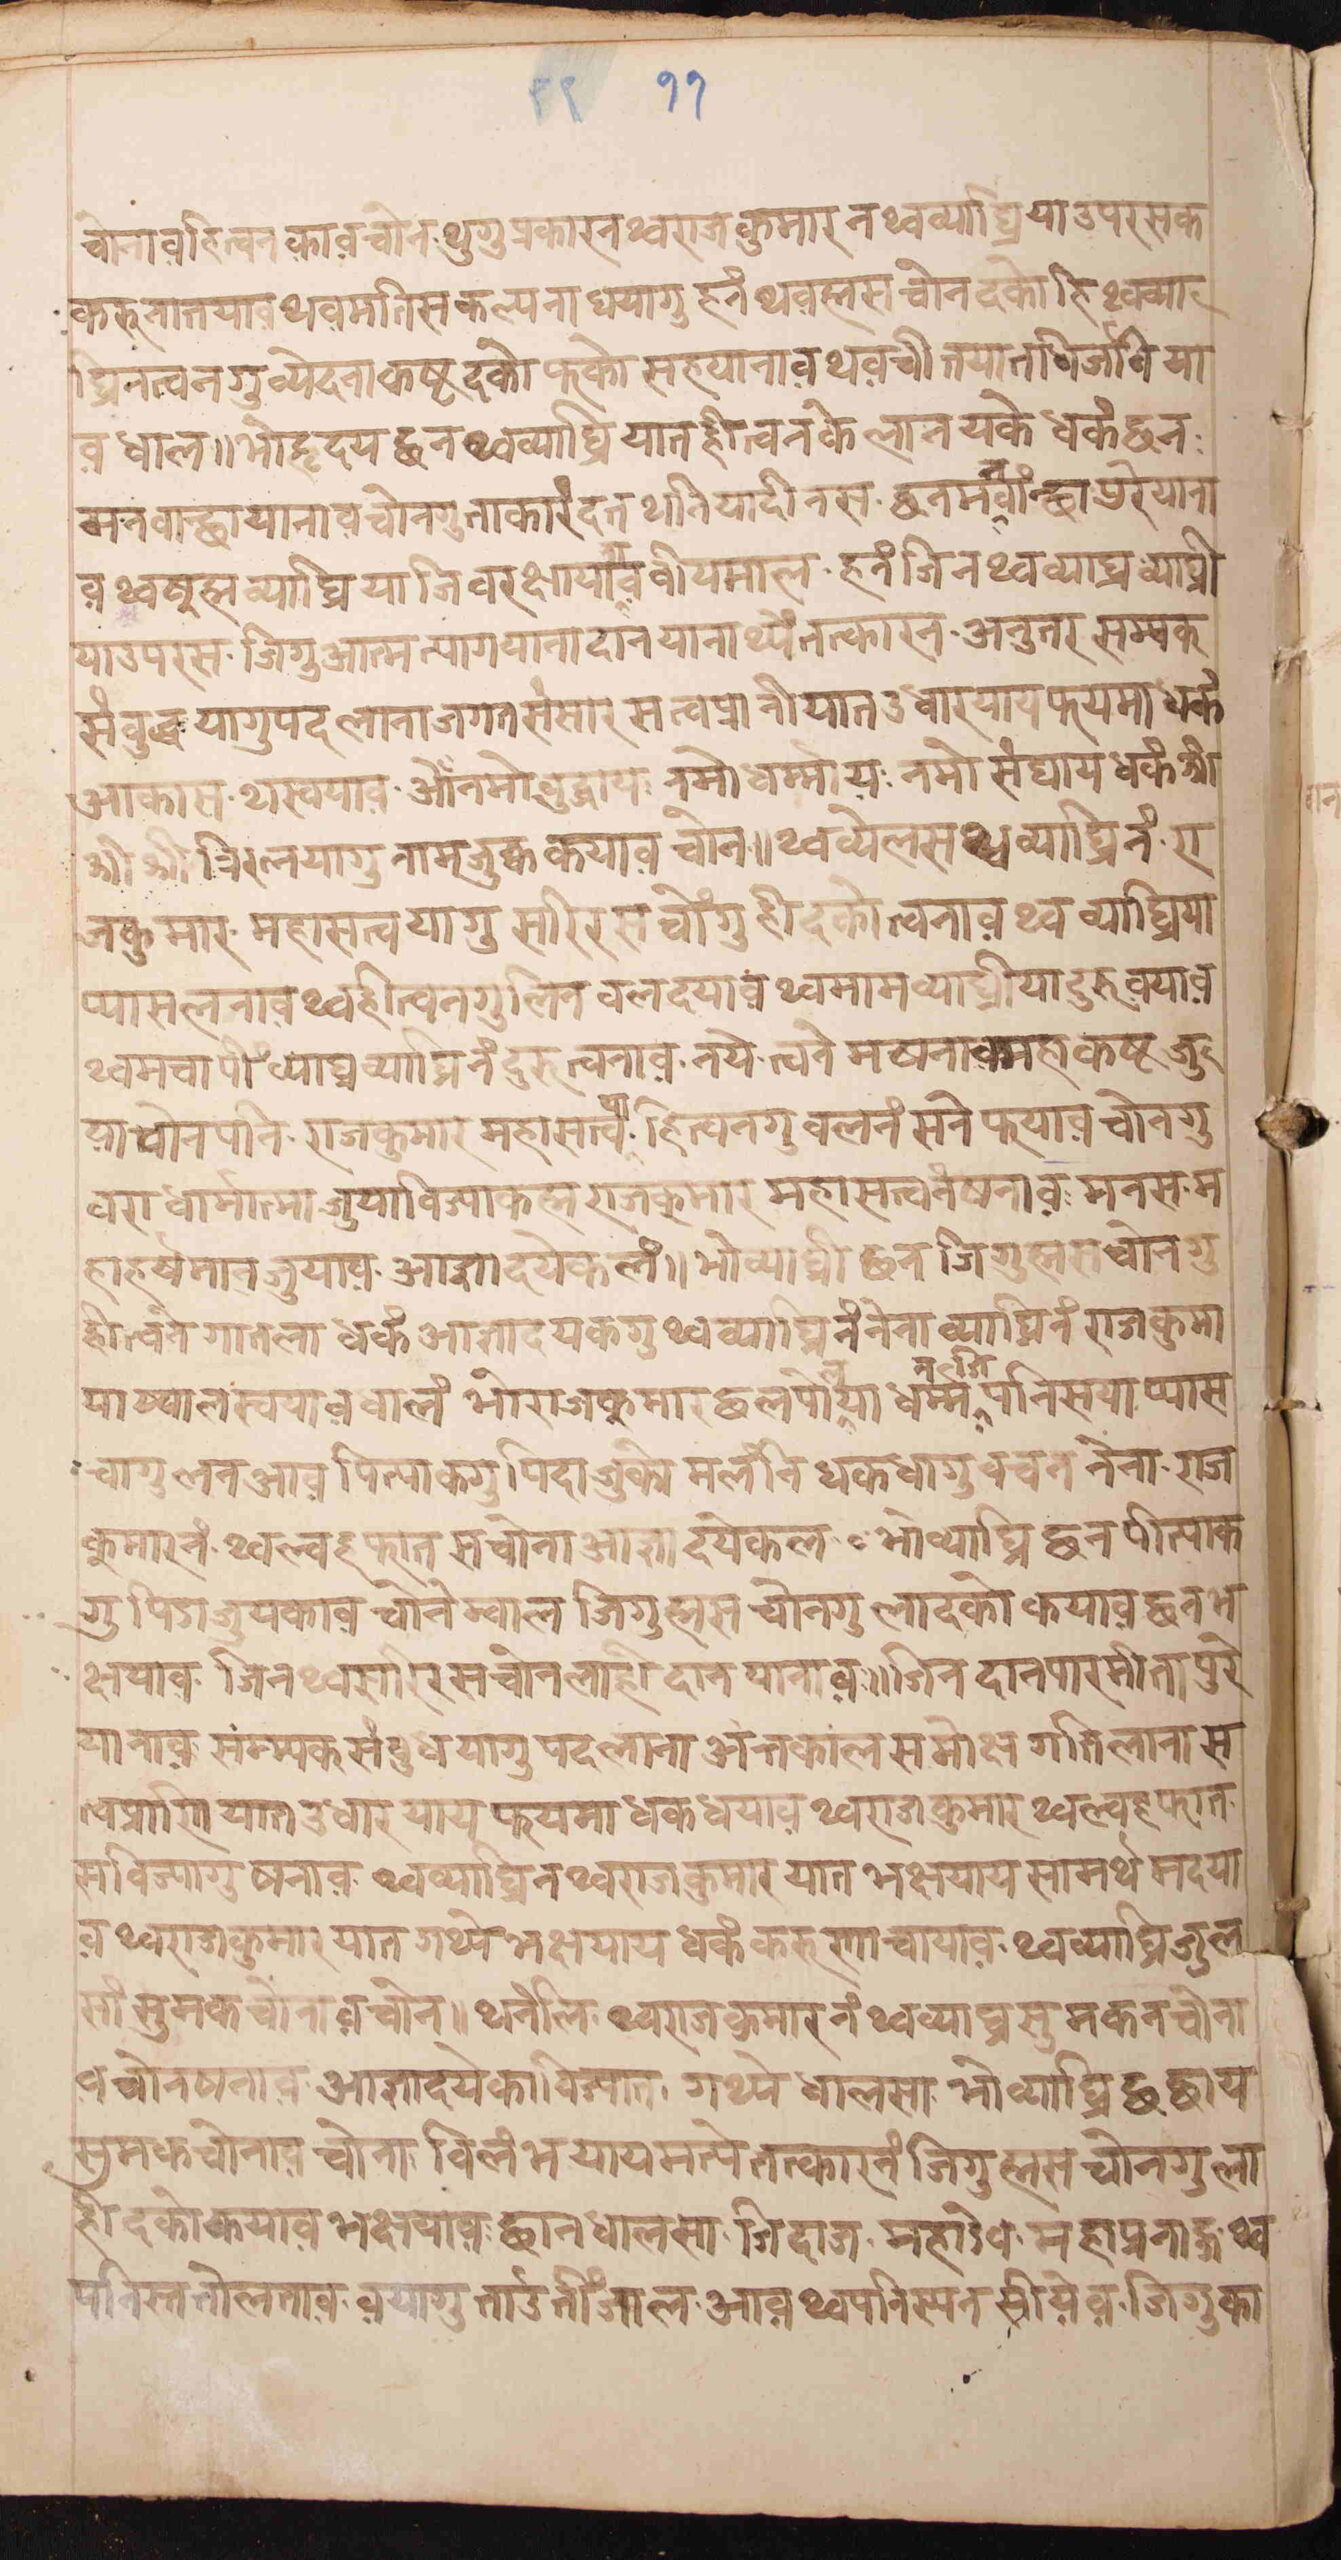 ११ ११
चोनाव हित्वनकाव चोन थुगु प्रकारन थ्व राजकुमारन थ्व व्याघ्रिया उपरस क
करुनातयाव थवमतिस कल्पना धयागु हनं थवह्मस चोन दको हि थ्व व्या
घ्रिन त्वनगु व्येदना कष्ट दको फको सहयानाव थव चीतयात
व धाल॥ भो हृदय छन थ्व व्याघ्रियात हीत्वनके लानयके धकं छन
मनवान्छा यानाव चोनगु ताकारं दत थनियादीनस छन मनवांन्छा पुरेयाना
व थ्व षुह्म व्याघ्रिया जिवरक्षा यानाव वीयमाल हनं जिन थ्व व्याघ्र व्याघ्री
या उपरस जिगु आत्म त्याग याना दान याना थ्येतत्कारन अनुतर सम्यक
संबुद्ध यागु पद लाना जगत संसार सत्वप्रानीयात उधारयाय फयमा धकं
आकास थस्वयाव ओं नमो बुद्धाय नमो धर्म्माय नमो संघाय धकं श्री
श्री श्री त्रिरत्नयागु नाम जुक्क कयाव चोन॥ थ्वव्येलस थ्व व्याघ्रिनं रा
जकुमार महासत्वयागु सरिरस चोंगु ही दको त्वनाव थ्व व्याघ्रिया
प्यास लनाव थ्व ही त्वनगुलिन वल दयाव थ्व माम व्याघ्रीया दुरु वयाव
थ्व मचापीं व्याघ्र व्याघ्रिनं दुरु त्वनाव नये त्वने मषनाव महाकष्ट जु
या चोनपनि राजकुमार महासत्वया हि त्वनगु वलनं सने फयाव चोनगु
वरा धार्मात्मा जुया विज्याकह्म राजकुमार महासत्वनं षनाव मनस म
हाहर्षमान जुयाव आज्ञा दयेकलं॥ भो व्याघ्री छन जिगु ह्मस चोनगु
ही त्वने गातला धकं आज्ञा दयकगु थ्व व्याघ्रिनं नेना व्याघ्रिनं राजकुमा
या ष्वाल स्वयाव धालं भो राजकुमार छलपोलया धर्म्मन जिपनिसया प्यास
चागु लन आव पित्याकगु पिदा जुको मलंनि धक धागु वचन नेना राज
कुमारनं थ्व ल्वहफात सचोना आज्ञा दयेकल भो व्याघ्रि छन पीत्याक
गु पिडा जुयकाव चोने म्वाल जिगु ह्मस चोनगु ला दको कयाव छन भ
क्षयाव जिन थ्व सरिरस चोन लाही दान यानाव॥ जिन दानपारमीता पुरे
यानाव संम्यक संबुध यागु पद लाना अंतकालस मोक्ष गति लाना स
त्वप्रानियात उधारयाय फयमा धक धयाव थ्व राजकुमार थ्व ल्वहफात
स विज्यागु षनाव थ्व व्याघ्रिन थ्व राजकुमारयात भक्षयाय सामर्थ मदया
व थ्व राजकुमारयात गथ्ये भक्षयाय धकं करुणा चायाव थ्व व्याघ्रि जुल
सां सुमक चोनाव चोन॥ थनंलि थ्व राजकुमारनं थ्व व्याघ्र सुमकन चोना
व चोन षनाव आज्ञा दयेका विज्यात गथ्ये धालसा भो व्याघ्रि छ छाय
सुमक चोनाव चोना विलंभ यायमत्ये तत्कारनं जिगु ह्मस चोनगु ला
ही दको कयाव भक्षयाव छान धालसा जि दाज महादेव महाप्रनाद थ्व
पनिस्त तोलताव वयागु ताउती जाल आव थ्वपनिस्यन सीयेव जिगु का